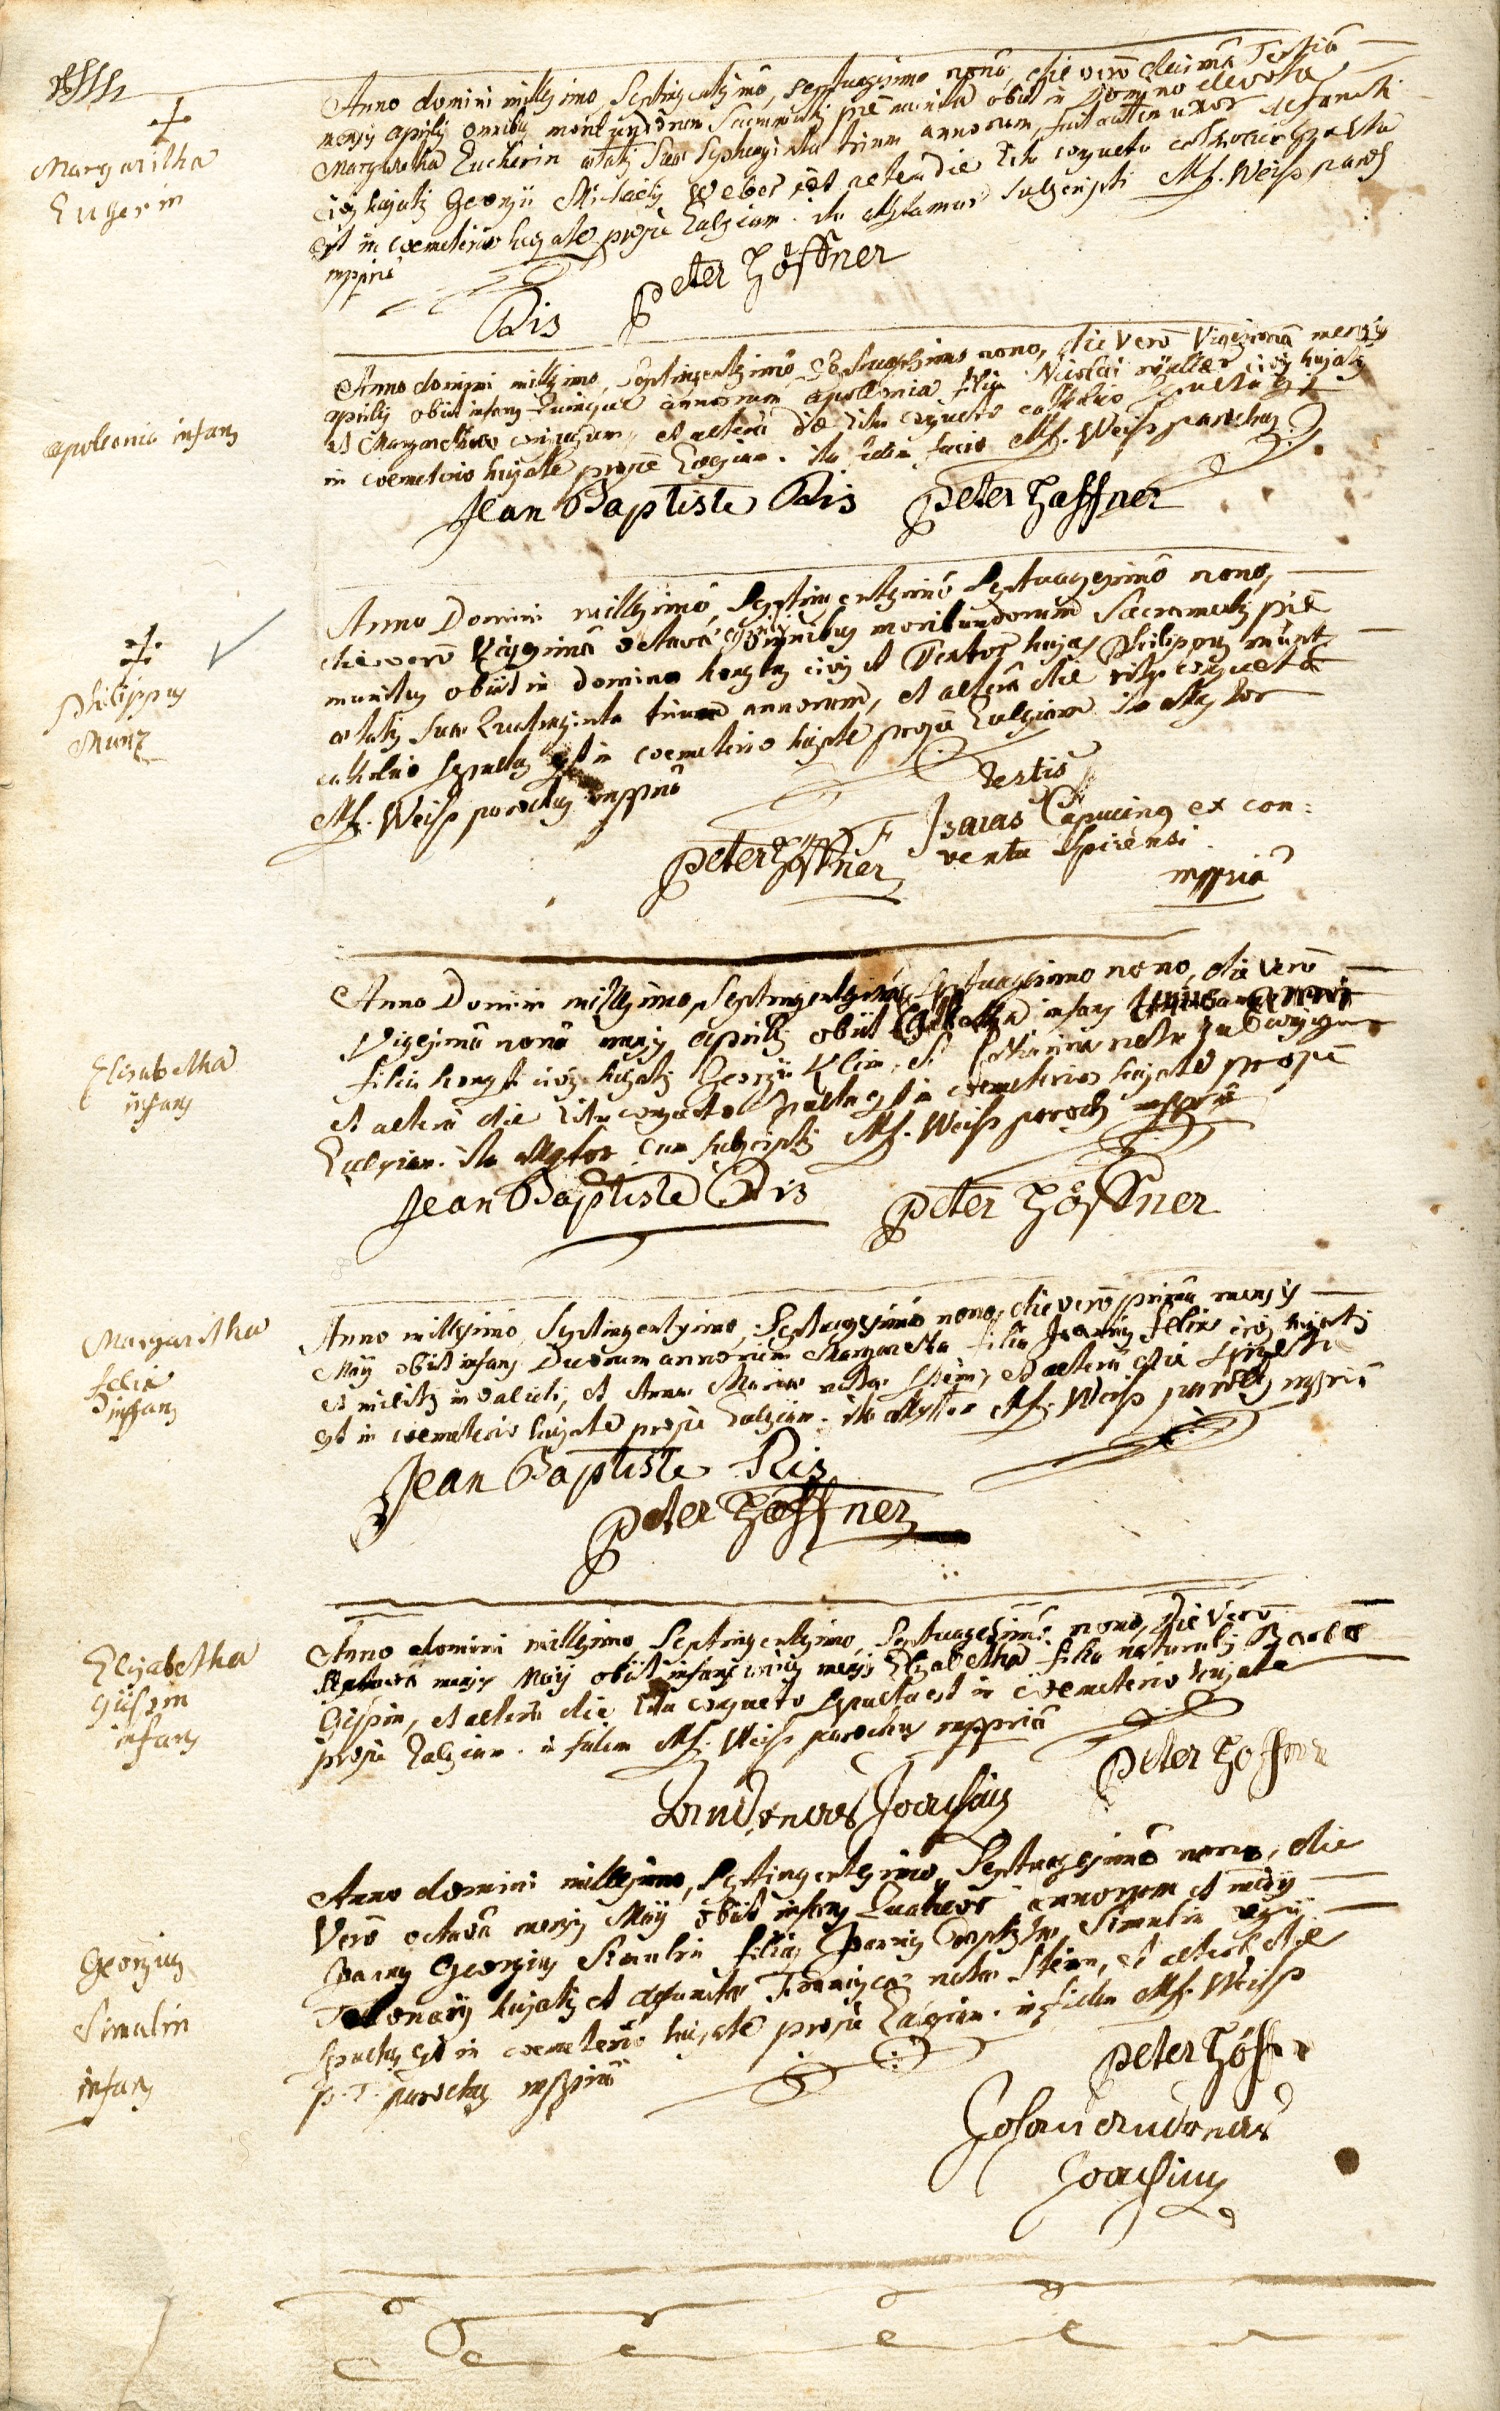 Margaritha
Eugerin
Anno domini millesimo, Septingentesimo, septuagesimo nono, die vero decima Tertia
mensis aprilis omnibus moribundorum Sacramentis pie munita obiit in Domino devota
Margaretha Eucherin aetatis suae septuaginta trium annorum, fuit autem uxor defuncti
civis hujatis Georgii Michaelis Weber et altera die ritu consueto catholico sepulta
est in coemeterio hujate prope Ecclesiam. ita attestamur subscripti Mf. Weiss paroch
mppriâ
Ris Peter Höffner
apoleonia infans
Anno domini millesimo, Septingentesimo, Septuagesimo nono, die vero Vigesima mensis
aprilis obiit infans quinque annorum apollonia filia Nicolai müller civis hujatis
et Margarethae conjugum, et altera die ritu consueto catholico sepulta est
in coemeterio hujate prope Ecclesiam. in fidem facio Mf. Weiss parochus
Jean Baptiste Ris Peter Haffner
Philippus
Munz
Anno Domini millesimo, Septingentesimo Septuagesimo nono,
die vero Vigesima octava aprilis omnibus moribundorum Sacramentis pie
munitus obiit in Domino honestus civis et Textor hujas Philippus Muntz
aetatis suae Quadraginta trium annorum, et altera die ritu consueto
catholico sepultus est in coemeterio hujate prope Ecclesiam. ita attestor
Mf. Weiss parochus mppriâ
Testis
Peter Höffner F Isaias Capucinus ex con:
ventu Spirensi
mppriâ
Elisabetha
infans
Anno Domini millesimo, Septingentesimo, Septuagesimo nono, die vero
Vigesima nona mensis aprilis obiit Elisabetha infans
filia honesti civis hujatis Georgii Klein, et conjugum
et altera die ritu consueto sepulta est in coemeterio hujate prope
Ecclesiam. ita attestor cum subscriptis Mf. Weiss paroch mppriâ
Jean Baptiste Ris Peter Höffner
Margaritha
felix
infans
Anno millesimo, Septingentesimo, Septuagesimo nono, die vero prima mensis
Maij obiit infans Duorum annorum Margareta filia Joannis felix civis hujatis
et militis invalidi, et Annae Mariae natae, et altera die sepulta
est in coemeterio hujate prope Ecclesiam. ita attestor Mf. Weiss paroch mppriâ
Jean Baptiste Ris
Peter Höffner
Elisabetha
Gispin
infans
Anno domini millesimo, Septingentesimo, Septuagesimo nono, die vero
mensis Maij obiit infans unius mensis Elisabetha filia naturalis
Gispin, et altera die ritu consueto sepulta est in coemeterio hujate
prope Ecclesiam. in fidem Mf. Weiss parochus mppriâ
Peter Hoffner
Joachim
Georgius
Simulin
infans
Anno domini millesimo, Septingentesimo, Septuagesimo nono, die
Vero octava mensis Maij obiit infans Quatuor annorum et medii
Joannes Georgius Simulin filius Joannis Baptistae Simulin
Telonarij hujatis et defunctae Franciscae natae Stein, et altera die
sepultus est in coemeterio hujate prope Ecclesiam. in fidem Mf. Weiss
p. T. parochus mppriâ
Peter Höff
Johan andreas
Joachim